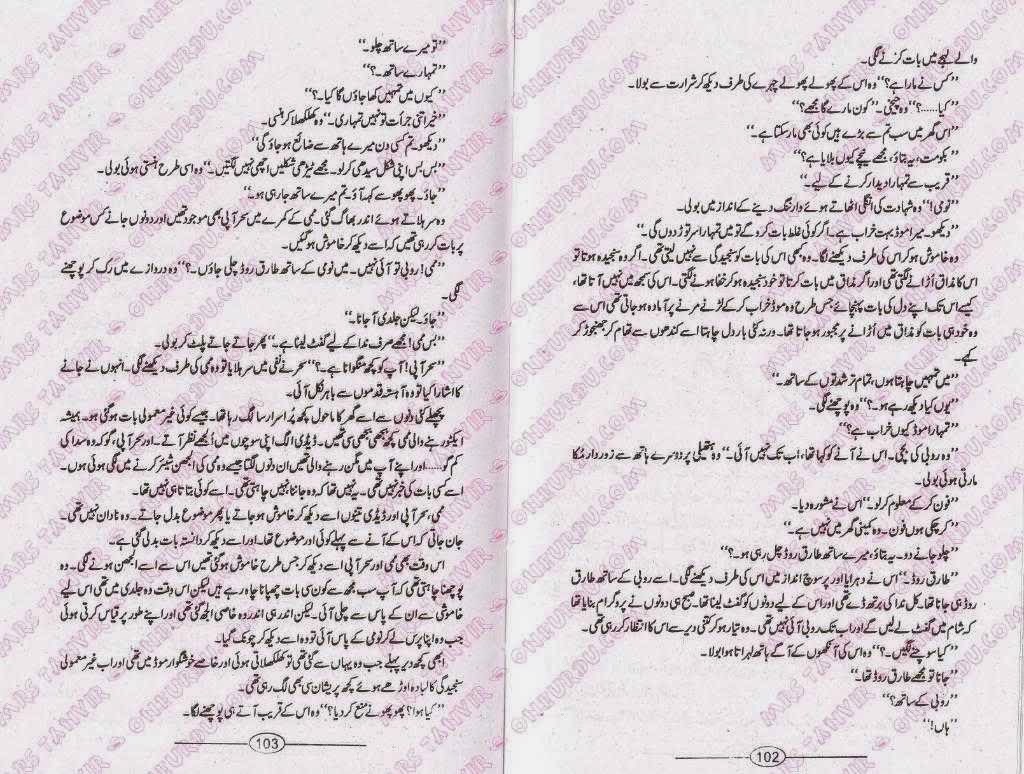 والے لہجے میں بات کرنے لگی۔
”کس نے مارا ہے؟“ وہ اس کے پھولے پھولے چہرے کی طرف دیکھ کر شرارت سے بولا۔
”کیا......؟“ وہ چیخی۔ ”کون مارے گا مجھے؟“
”اس گھر میں سب تم سے بڑے ہیں کوئی بھی مار سکتا ہے۔“
”بکومت، یہ بتاؤ، مجھے نیچے کیوں بلایا ہے؟“
”قریب سے تمہارا دیدار کرنے کے لیے۔“
”نومی!“ وہ شہادت کی انگلی اٹھاتے ہوئے وارننگ دینے کے انداز میں بولی۔
”دیکھو۔ میرا موڈ بہت خراب ہے۔ اگر کوئی غلط بات کرو گے تو میں تمہارا سر توڑ دوں گی۔“
وہ خاموش ہو کر اس کی طرف دیکھنے لگا۔ وہ کبھی اس کی بات کو سنجیدگی سے نہیں لیتی تھی۔ اگر وہ سنجیدہ ہوتا تو
اس کا مذاق اُڑانے لگتی تھی اور اگر مذاق میں بات کرتا تو خود سنجیدہ ہو کر خفا ہونے لگتی۔ اس کی سمجھ میں نہیں آتا تھا،
کیسے اس تک اپنے دل کی بات پہنچائے جس طرح وہ موڈ خراب کر کے لڑنے مرنے پر آمادہ ہو جاتی تھی اس سے
وہ خود ہی بات کو مذاق میں اُڑانے پر مجبور ہو جاتا تھا۔ ورنہ کئی بار دل چاہتا اسے کندھوں سے تھام کر جھنجوڑ کر
کہے۔
”میں تمہیں چاہتا ہوں، تمام تر شدتوں کے ساتھ۔“
”یوں کیا دیکھ رہے ہو۔؟“ وہ پوچھنے لگی۔
”تمہارا موڈ کیوں خراب ہے؟“
”وہ روبی کی بچی۔ اس نے آنے کو کہا تھا، اب تک نہیں آئی۔“ وہ ہتھیلی پر دوسرے ہاتھ سے زوردار مُکا
مارتی ہوئی بولی۔
”فون کر کے معلوم کر لو۔“ اس نے مشورہ دیا۔
”کر چکی ہوں فون۔ وہ کمینی گھر میں نہیں ہے۔“
”چلو جانے دو۔ یہ بتاؤ، میرے ساتھ طارق روڈ چل رہی ہو۔؟“
”طارق روڈ۔“ اس نے دہرایا اور پرسوچ انداز میں اس کی طرف دیکھنے لگی۔ اسے روبی کے ساتھ طارق
روڈ ہی جانا تھا۔ کل ندا کی برتھ ڈے تھی اور اس کے لیے دونوں کو گفٹ لینا تھا۔ صبح ہی دونوں نے پروگرام بنایا تھا
کہ شام میں گفٹ لے لیں گے اور اب تک روبی آئی نہیں تھی۔ وہ تیار ہو کر کتنی دیر سے اس کا انتظار کر رہی تھی۔
”کیا سوچنے لگیں۔؟“ وہ اس کی آنکھوں کے آگے ہاتھ لہراتا ہوا بولا۔
”جانا تو مجھے طارق روڈ تھا۔“
”روبی کے ساتھ؟“
”ہاں!“
102
”تو میرے ساتھ چلو۔“
”تمہارے ساتھ۔؟“
”کیوں میں تمہیں کھا جاؤں گا کیا۔؟“
”خیر اتنی جرأت تو نہیں تمہاری۔“ وہ کھلکھلا کر ہنسی۔
”دیکھو۔ تم کسی دن میرے ہاتھ سے ضائع ہو جاؤ گی“
”بس بس اپنی شکل سیدھی کر لو۔ مجھے ٹیڑھی شکلیں اچھی نہیں لگتیں۔“ وہ اسی طرح ہنستی ہوئی بولی۔
”جاؤ۔ پھوپھو سے کہہ آؤ۔ تم میرے ساتھ جا رہی ہو۔“
وہ سر ہلاتے ہوئے اندر بھاگ گئی۔ ممی کے کمرے میں سحر آپی بھی موجود تھیں اور دونوں جانے کس موضوع
پر بات کر رہی تھیں کہ اسے دیکھ کر خاموش ہو گئیں۔
”ممی! روبی تو آئی نہیں۔ میں نومی کے ساتھ طارق روڈ چلی جاؤں۔؟“ وہ دروازے میں رک کر پوچھنے
لگی۔
”جاؤ۔ لیکن جلدی آ جانا۔“
”بس ممی! مجھے صرف ندا کے لیے گفٹ لینا ہے۔“ پھر جاتے جاتے پلٹ کر بولی۔
”سحر آپی! آپ کو کچھ منگوانا ہے؟“ سحر نے نفی میں سر ہلایا تو وہ ممی کی طرف دیکھنے لگی۔ انہوں نے جانے
کا اشارا کیا تو وہ آہستہ قدموں سے باہر نکل آئی۔
پچھلے کئی دنوں سے اسے گھر کا ماحول کچھ پُراسرار سا لگ رہا تھا۔ جیسے کوئی غیر معمولی بات ہو گئی ہو۔ ہمیشہ
ایکٹو رہنے والی ممی کچھ بجھی بجھی سی تھیں۔ ڈیڈی الگ اپنی سوچوں میں اُلجھے نظر آتے۔ اور سحر آپی، گو کہ وہ سدا کی
کم گو...... اور اپنے آپ میں مگن رہنے والی تھیں ان دنوں لگتا جیسے وہ ممی کی الجھن شیئر کرنے میں لگی ہوئی ہوں۔
اسے کسی بات کی خبر نہیں تھی۔ یہ نہیں تھا کہ وہ جاننا نہیں چاہتی تھی۔ اسے کوئی بتاتا ہی نہیں تھا۔
ممی، سحر آپی اور ڈیڈی تینوں اسے دیکھ کر خاموش ہو جاتے یا پھر موضوع بدل جاتے۔ وہ نادان نہیں تھی۔
جان جاتی کہ اس کے آنے سے پہلے کوئی اور موضوع تھا۔ اور اسے دیکھ کر دانستہ بات بدلی گئی ہے۔
اس وقت بھی ممی اور سحر آپی اسے دیکھ کر جس طرح خاموش ہو گئی تھیں اس سے اسے الجھن ہونے لگی۔ وہ
پوچھنا چاہتی تھی کہ آپ سب مجھ سے کون سی بات چھپانا چاہ رہے ہیں لیکن اس وقت وہ جلدی میں تھی اس لیے
خاموشی سے ان کے پاس سے چلی آئی۔ لیکن اندر ہی اندر وہ خاصی الجھ گئی تھی اور اپنے طور پر قیاس کرتی ہوئی
جب وہ اپنا پرس لے کر نومی کے پاس آئی تو وہ اسے دیکھ کر چونک گیا۔
ابھی کچھ دیر پہلے جب وہ یہاں سے گئی تھی تو کھلکھلاتی ہوئی اور خاصے خوشگوار موڈ میں تھی اور اب غیر معمولی
سنجیدگی کا لبادہ اوڑھے ہوئے کچھ پریشان سی بھی لگ رہی تھی۔
”کیا ہوا؟ پھوپھو نے منع کر دیا؟“ وہ اس کے قریب آتے ہی پوچھنے لگا۔
103